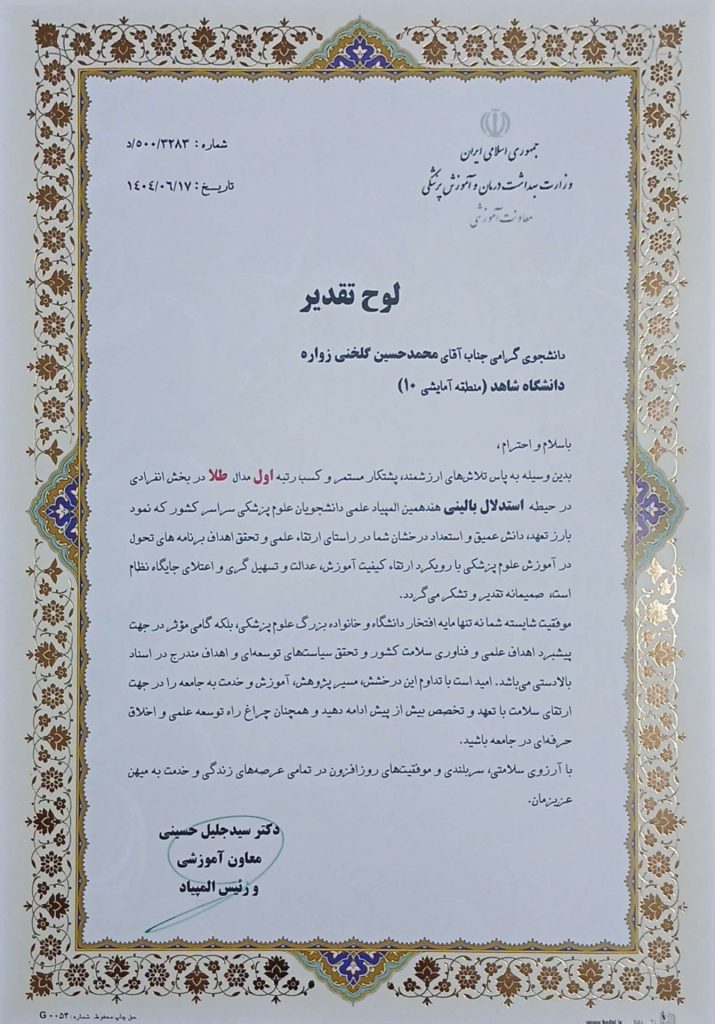 جمهوری اسلامی ایران
وزارت بهداشت درمان و آموزش پزشکی
معاونت آموزشی
شماره : ۵۰۰/۳۲۸۳/د
تاریخ : ۱۴۰۴/۰۶/۱۷
لوح تقدیر
دانشجوی گرامی جناب آقای محمدحسین گلخنی زواره
دانشگاه شاهد (منطقه آمایشی ۱۰)
باسلام و احترام،
بدین وسیله به پاس تلاش‌های ارزشمند، پشتکار مستمر و کسب رتبه اول مدال طلا در بخش انفرادی
در حیطه استدلال بالینی هفدهمین المپیاد علمی دانشجویان علوم پزشکی سراسر کشور که نمود
بارز تعهد، دانش عمیق و استعداد درخشان شما در راستای ارتقاء علمی و تحقق اهداف برنامه های تحول
در آموزش علوم پزشکی با رویکرد ارتقاء کیفیت آموزش، عدالت و تسهیل گری و اعتلای جایگاه نظام
است، صمیمانه تقدیر و تشکر می‌گردد.
موفقیت شایسته شما نه تنها مایه افتخار دانشگاه و خانواده بزرگ علوم پزشکی، بلکه گامی مؤثر در جهت
پیشبرد اهداف علمی و فناوری سلامت کشور و تحقق سیاست‌های توسعه‌ای و اهداف مندرج در اسناد
بالادستی می‌باشد. امید است با تداوم این درخشش، مسیر پژوهش، آموزش و خدمت به جامعه را در جهت
ارتقای سلامت با تعهد و تخصص بیش از پیش ادامه دهید و همچنان چراغ راه توسعه علمی و اخلاق
حرفه‌ای در جامعه باشید.
با آرزوی سلامتی، سربلندی و موفقیت‌های روزافزون در تمامی عرصه‌های زندگی و خدمت به میهن
عزیزمان.
دکتر سیدجلیل حسینی
معاون آموزشی
و رئیس المپیاد
حق چاپ محفوظ. شماره: G - ۰۵۳